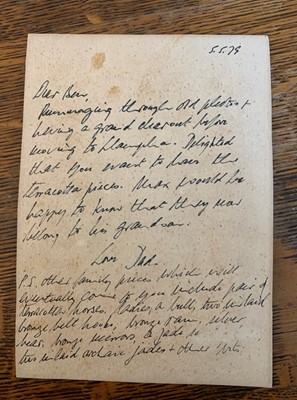 5.5.79
Dear Ben,
Rummaging through old photos +
having a grand clearout before
moving to Llangolen. Delighted
that you want to have the
terracotta pieces. Max would be
happy to know that they now
belong to his grandson.
Love Dad.
P.S. other family pieces which will
eventually come to you include pair of
terracotta horses, ladies, a bull, two inlaid
bronze belt hooks, bronze ram, silver
bear, bronze mirrors, & jade
two inlaid archaic jades + other